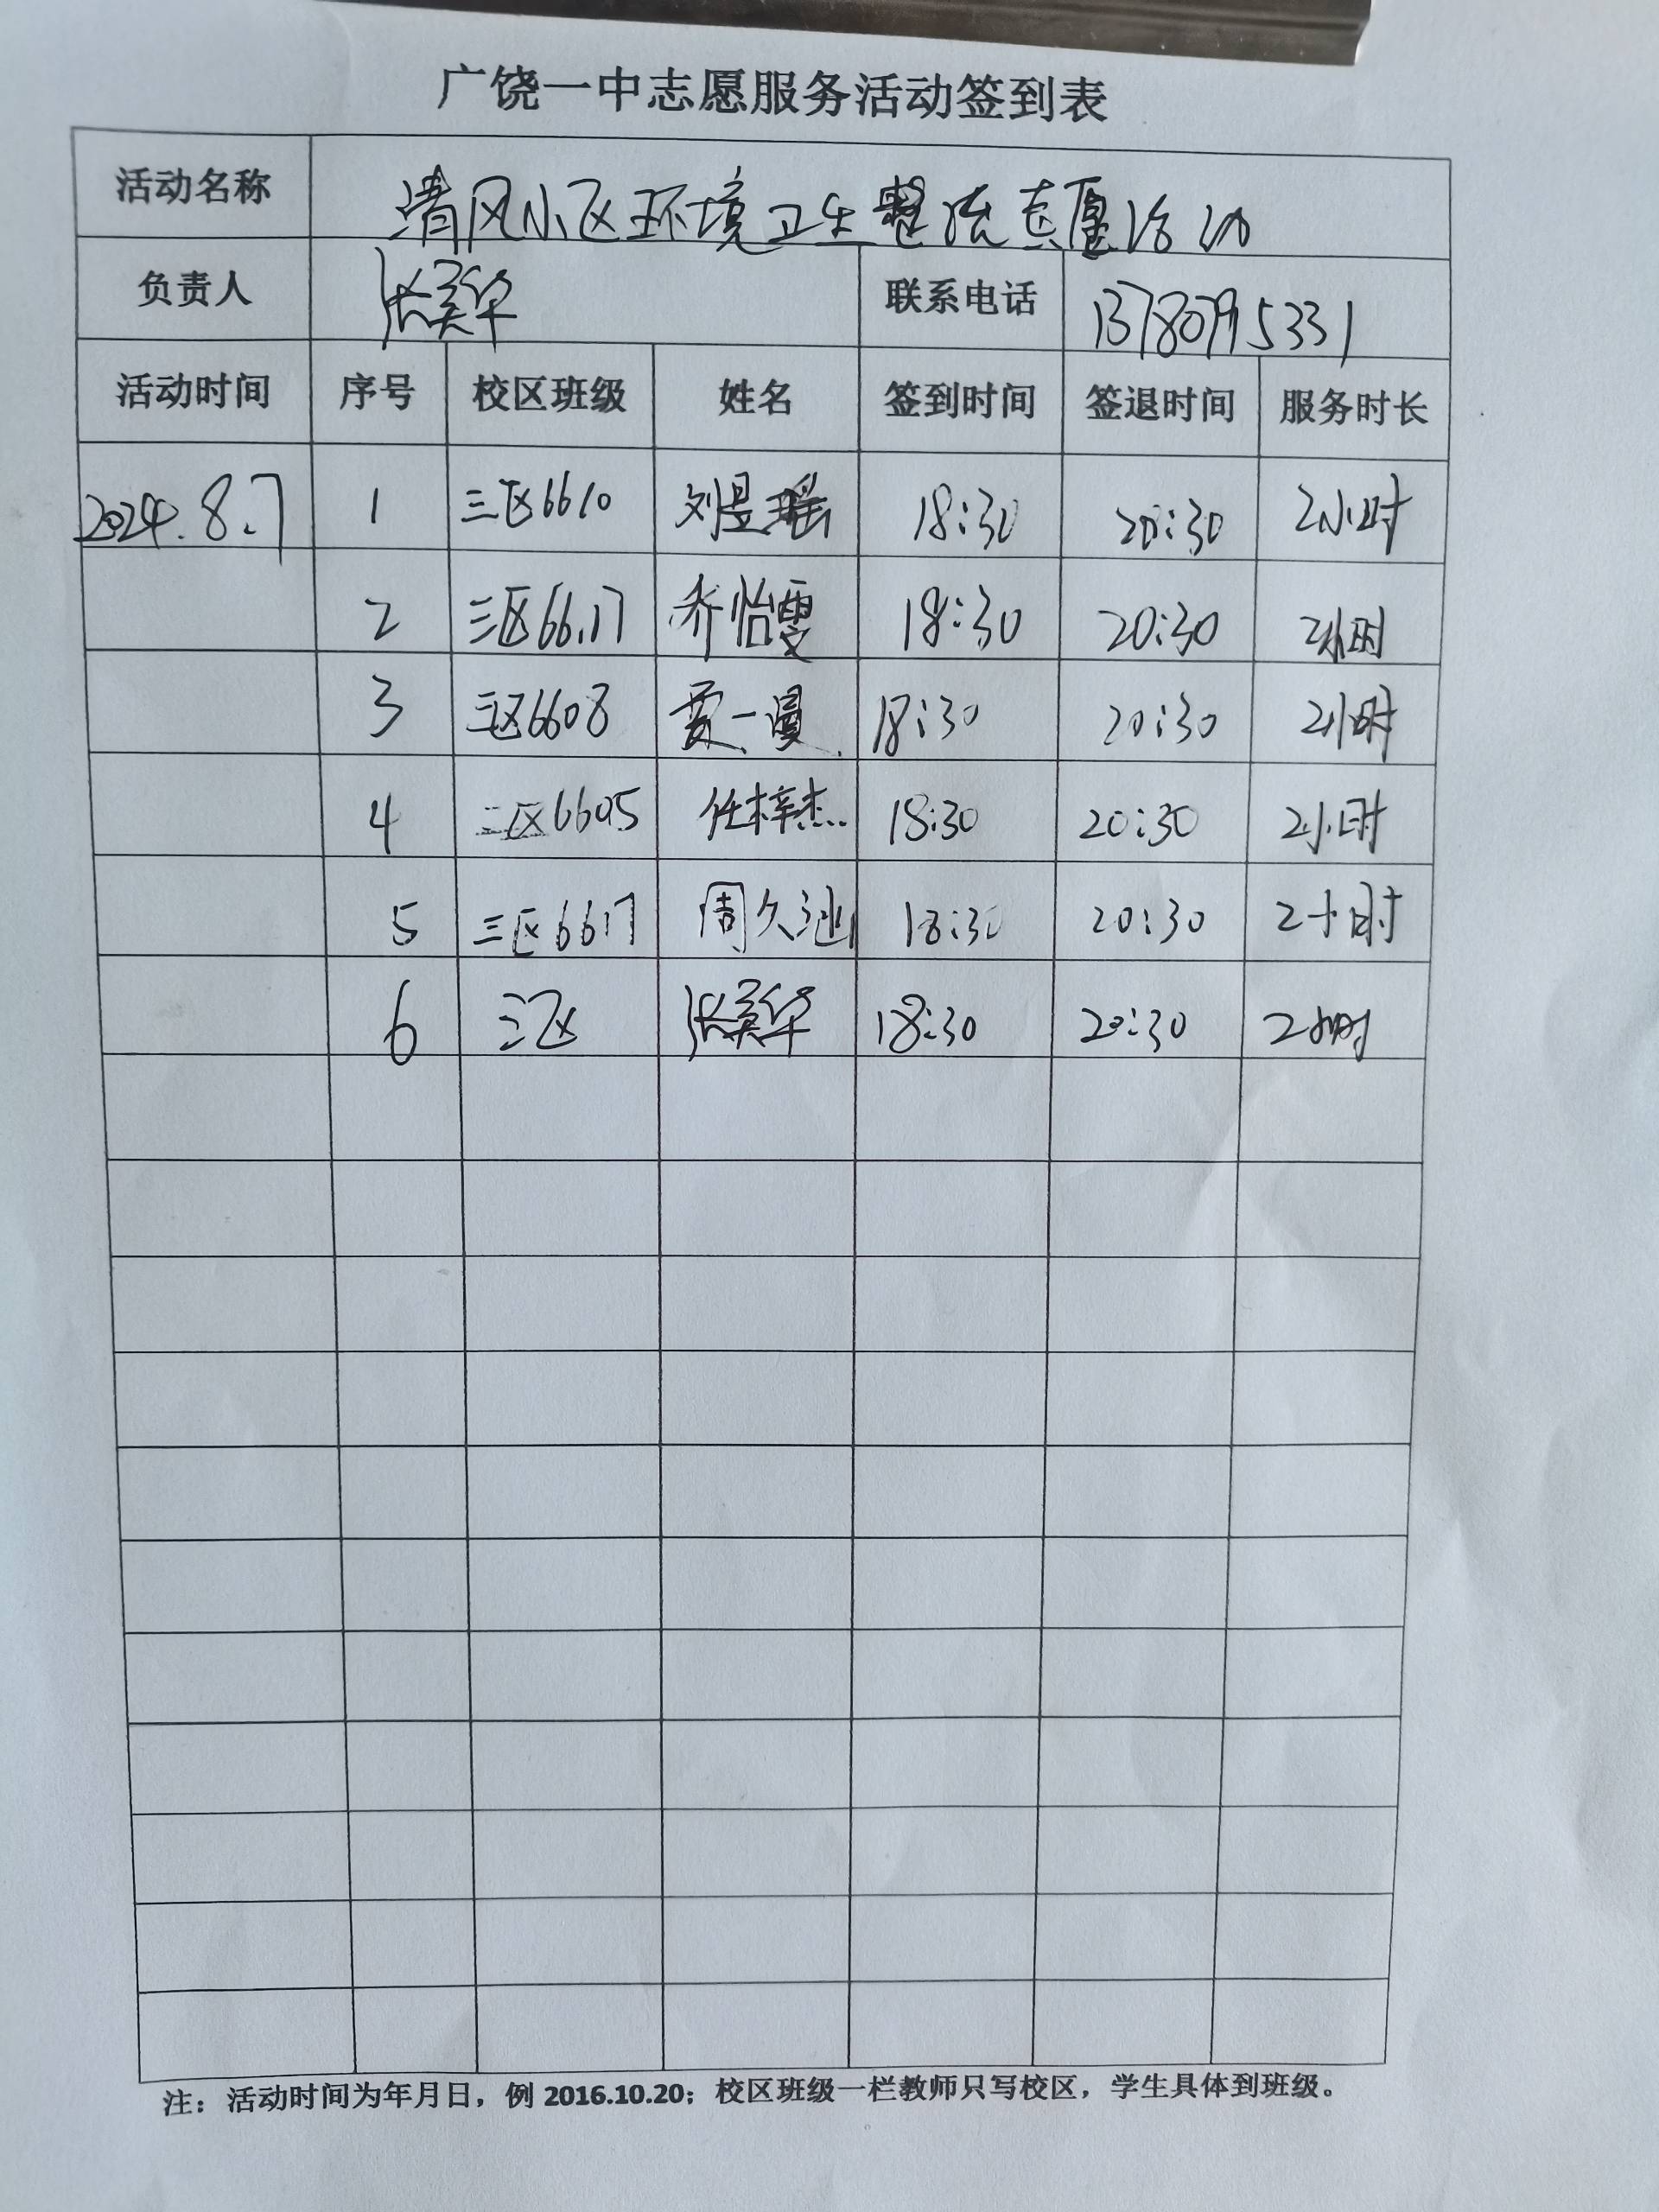 广饶一中志愿服务活动签到表
活动名称 清风小区环境卫生整治志愿活动
负责人 张美华 联系电话 13780795331
活动时间 序号 校区班级 姓名 签到时间 签退时间 服务时长
2024.8.7 1 三区6610 刘昱瑶 18:30 20:30 2小时
2 三区6617 乔怡雯 18:30 20:30 2小时
3 三区6608 贾一曼 18:30 20:30 2小时
4 三区6605 任梓杰 18:30 20:30 2小时
5 三区6617 周久 18:30 20:30 2小时
6 三区 张美华 18:30 20:30 2小时
注：活动时间为年月日，例 2016.10.20；校区班级一栏教师只写校区，学生具体到班级。